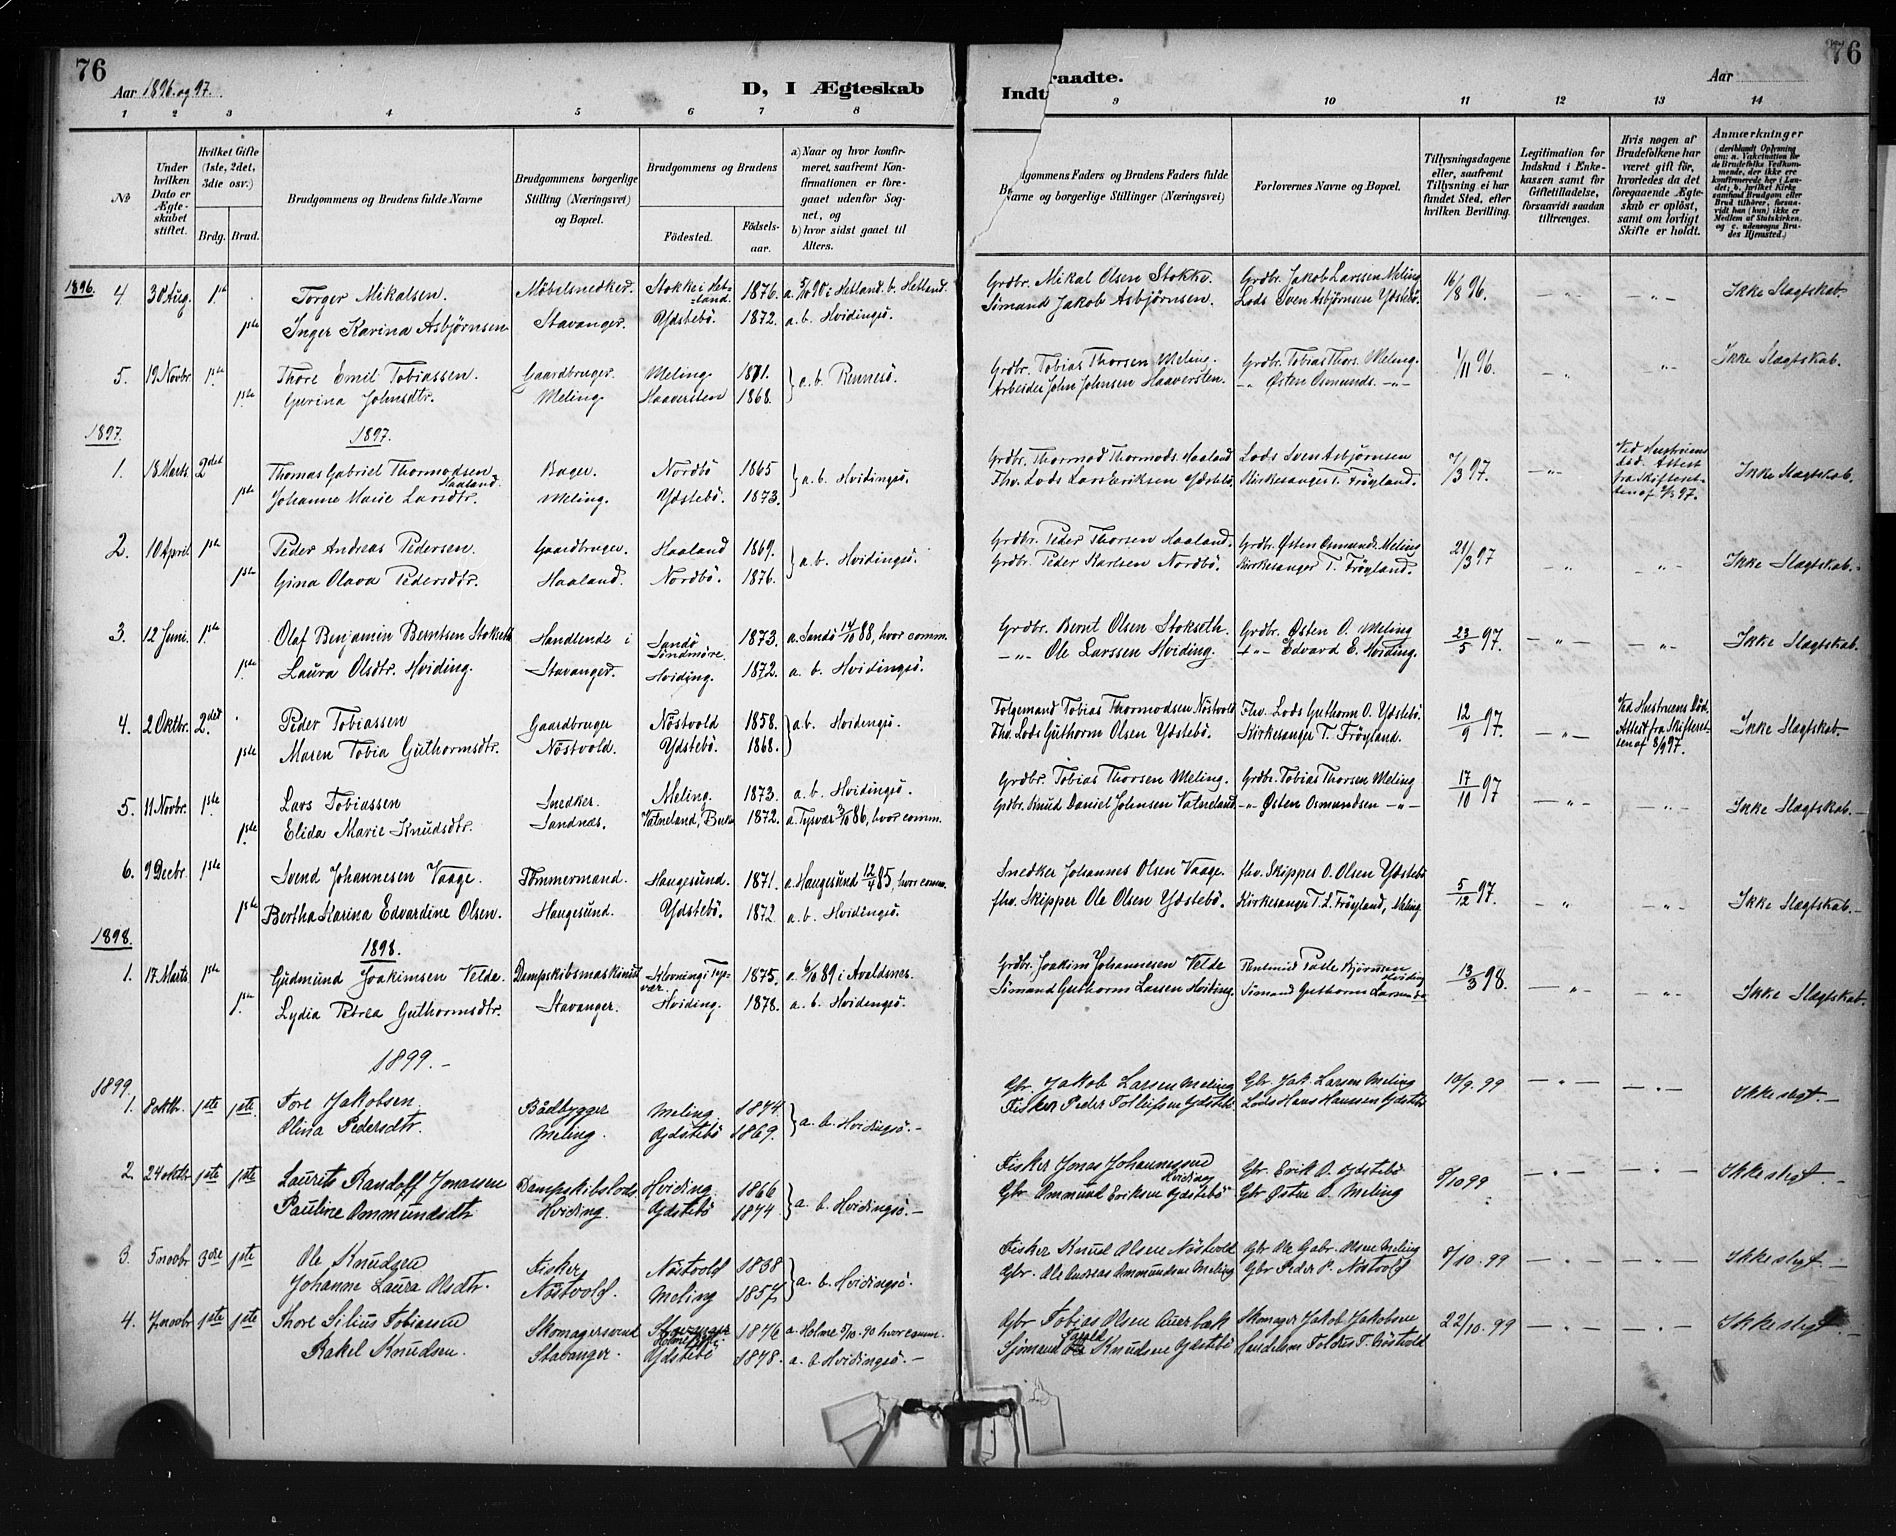 76
Aar 1896 og 97.
D, I Ægteskab
Indt raadte.
Aar
76
1 2 3 4 5 6 7 8 9 10 11 12 13 14
No
Under hvilken Dato er Ægteskabet stiftet.
Hvilket Gifte (1ste, 2det, 3die osv.)
Brdg. Brud.
Brudgommens og Brudens fulde Navne
Brudgommens borgerlige Stilling (Næringsvei) og Bopæl.
Brudgommens og Brudens
Fødested.
Fødselsaar.
a) Naar og hvor konfirmeret, saafremt Konfirmationen er foregaaet udenfor Sognet, og
b) hvor sidst gaaet til Alters.
dgommens Faders og Brudens Faders fulde Navne og borgerlige Stillinger (Næringsvei)
Forlovernes Navne og Bopæl.
Tillysningsdagene eller, saafremt Tillysning ei har fundet Sted, efter hvilken Bevilling.
Legitimation for Indskud i Enkekassen samt for Giftetilladelse, forsaavidt saadan tiltrænges.
Hvis nogen af Brudefolkene har været gift før, hvorledes da det foregaaende Ægteskab er opløst, samt om lovligt Skifte er holdt.
Anmærkninger
(deriblandt Oplysning om: a. Vaksination for de Brudefolks Vedkommende, der ikke ere konfirmerede her i Landet; b. hvilket Kirkesamfund Brudgom eller Brud tilhører, forsaavidt han (hun) ikke er Medlem af Statskirken, og c. udensogns Brudes Hjemsted.)
1896. 4 30 Aug. 1ste Torger Mikalsen. Møbelsnedker. Stokke i Hetland. 1876. a. 5/10 90 i Hetland. b. Hetland. Grdbr. Mikal Olsen Stokke. Grdbr. Jakob Larssen Meling 16/8 96. Ikke Slagtskab.
1ste Inger Karina Asbjørnsen Stavanger. Ydstebö. 1872. a. b. Hvidingsö. Sömand Jakob Asbjörnsen. Lods Sven Asbjörnsen Ydstebö.
5. 19 Novbr. 1ste Thore Emil Tobiassen. Gaardbruger. Meling 1871. a. b. Rennesö. Grdbr. Tobias Thorsen Meling. Grdbr. Tobias Thors. Meling. 1/11 96. Ikke Slagtskab.
1ste Gurina Johnsdtr. Meling Haaversten 1868. Arbeider John Johnsen Haaversten. -"- Östen Osmunds. -"-
1897. 1897.
1. 18 Marts 2det Thomas Gabriel Thormodsen Haaland Bager. Nordbö 1865 a. b. Hvidingsö. Grdbr. Thormod Thormods. Haaland Lods Sven Asbjörnsen 7/3 97. Ved Hustruens död. Attest fra Skifteretten af 2/3 97. Ikke Slagtskab.
1ste Johanne Marie Larsdtr. Meling. Ydstebö. 1873. Fhv. Lods Lars Eriksen Ydstebö. Kirkesanger T. Fröyland.
2. 10 April 1ste Peder Andreas Pedersen. Gaardbruger. Haaland 1869. a. b. Hvidingsö. Grdbr. Peder Thorsen Haaland. Grdbr. Östen Osmunds. Meling 21/3 97 Ikke Slagtskab.
1ste Gina Olava Pedersdtr. Haaland. Nordbö. 1876. Grdbr. Peder Karlsen Nordbö. Kirkesanger T. Fröyland.
3. 12 Juni. 1ste Olaf Benjamin Berntsen Stokseth Handlende i Sandö Söndmöre. 1873. a. Sandö 14/10 88, hvor comm. Grdbr. Bernt Olsen Stokseth. Grdbr. Östen O. Meling 23/5 97. Ikke Slagtskab.
1ste Laura Olsdtr. Hviding. Stavanger. Hviding. 1872. a. b. Hvidingsö. -"- Ole Larssen Hviding. -"- Edvard E. Hviding.
4. 2 Oktbr. 2det Peder Tobiassen Gaardbruger Nöstvold 1858. a. b. Hvidingsö. Folgemand Tobias Thormodsen Nöstvold Fhv. Lods Guthorm O. Ydstebö. 12/9 97. Ved Hustruens Död. Attest fra Skifteretten af 8/9 97. Ikke Slagtskab.
1ste Maren Tobia Guthormsdtr. Nöstvold. Ydstebö. 1868. Fhv. Lods Guthorm Olsen Ydstebö. Kirkesanger T. Fröyland.
5. 11 Novbr. 1ste Lars Tobiassen Snedker. Meling. 1873. a. b. Hvidingsö. Grdbr. Tobias Thorsen Meling. Grdbr. Tobias Thorsen Meling 17/10 97 Ikke Slagtskab.
1ste Elida Marie Knudsdtr. Sandnæs. Vatneland, 1872. a. Tysvær 3/10 86, hvor comm. Grdbr. Knud Daniel Johnsen Vatneland. -"- Östen Osmundsen -"-
6. 9 Decbr. 1ste Svend Johannesen Vaage. Tömmermand. Haugesund. 1871. a. Haugesund 12/4 85, hvor comm. Snedker Johannes Olsen Vaage. fhv. Skipper O. Olsen Ydstebö 5/12 97. Ikke Slagtskab.
1ste Bertha Karina Edvardine Olsen. Haugesund. Ydstebö. 1872 a. b. Hvidingsö. fhv. Skipper Ole Olsen Ydstebö. Kirkesanger T. L. Fröyland, Meling
1898. 1898.
1. 17 Marts 1ste Gudmund Joakimsen Velde. Dampskibsmaskinist Klovning i Tysvær. 1875. a. 6/10 89 i Avaldsnes. Grdbr. Joakim Johannesen Velde Rentmid Palle Bjørnsen Hviding 13/3 98. Ikke Slagtskab.
1ste Lydia Petrea Guthormsdtr. Stavanger. Hviding. 1878. a. b. Hvidingsö. Sömand Guthorm Larsen Hviding. Sömand Guthorm Larsen do
1899.
1899. 1. 8 oktbr. 1ste 1ste. Tore Jakobsen. Bådbygger Meling 1874 a. b. Hvidingsö. Gbr. Jakob Larsen Meling Gbr. Jak. Larsen Meling 10/9. 99 Ikke slegt.
Olina Pedersdtr. Meling. Ydstebö 1869. Fisker Peder Tollufsen Ydstebö Lods Hans Hanssen Ydstebö
2. 24 oktbr 1ste 1ste Laurits Randoff Jonassen Dampskibslods Hviding 1866 a. b. Hvidingsö. Fisker Jonas Johannessen Hviding Gbr. Erik O. Ydstebö 8/10 99 Ikke slegt.
Pauline Ommundsdtr Hviding. Ydstebö 1874 Gbr Ommund Eriksen Ydstebö Gbr Östen O. Meling
3. 5 novbr 3die 1ste Ole Knudsen Fisker Nöstvold 1838 a. b. Hvidingsö. Fisker Knud Olsen Nöstvold Gbr Ole Gabr. Olsen Meling 8/10. 99 Ikke slegt
Johanne Laura Olsdtr. Nöstvold. Meling 1857. Gbr. Ole Andreas Ommundsen Meling Gbr Peder P. Nöstvold
4. 7 novbr 1ste 1ste Thore Silius Tobiassen Skomagersvend 1876 a. Holme 5/10. 90 hvor comm. Gbr Tobias Olsen Auerbæk Skomager Jakob Jakobsen 22/10. 99 Ikke slegt
Rakel Knudsen. Stavanger. Ydstebö 1878. a. b Hvidingsö. Sjömand Knudsen Ydstebö Handelsm Toldus T. Nöstvold